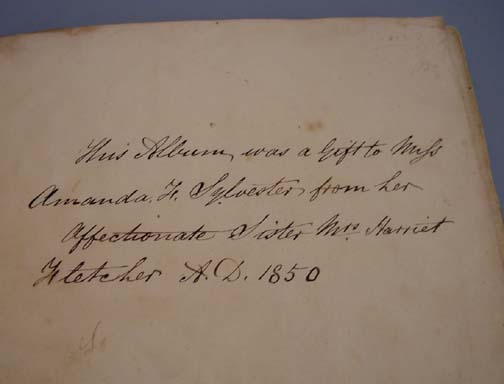 This Album, was a Gift to Miss
Amanda. F. Sylvester, from her
Affectionate Sister Mrs. Harriet
Fletcher A. D. 1850